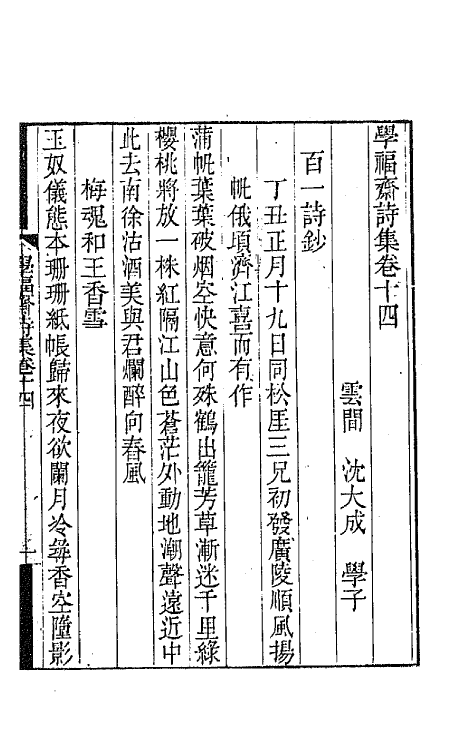 學福齋詩集卷十四
雲間　沈大成　學子
百一詩鈔
丁丑正月十九日同松厓三兄初發廣陵順風揚
帆俄頃濟江喜而有作
蒲帆葉葉破烟空快意何殊鶴出籠芳草漸迷千里綠
櫻桃將放一株紅隔江山色蒼茫外動地潮聲遠近中
此去南徐沽酒美與君爛醉向春風
梅魂和王香雪
玉奴儀態本珊珊紙帳歸來夜欲闌月冷彜香空墮影
學福齋詩集卷十四
一